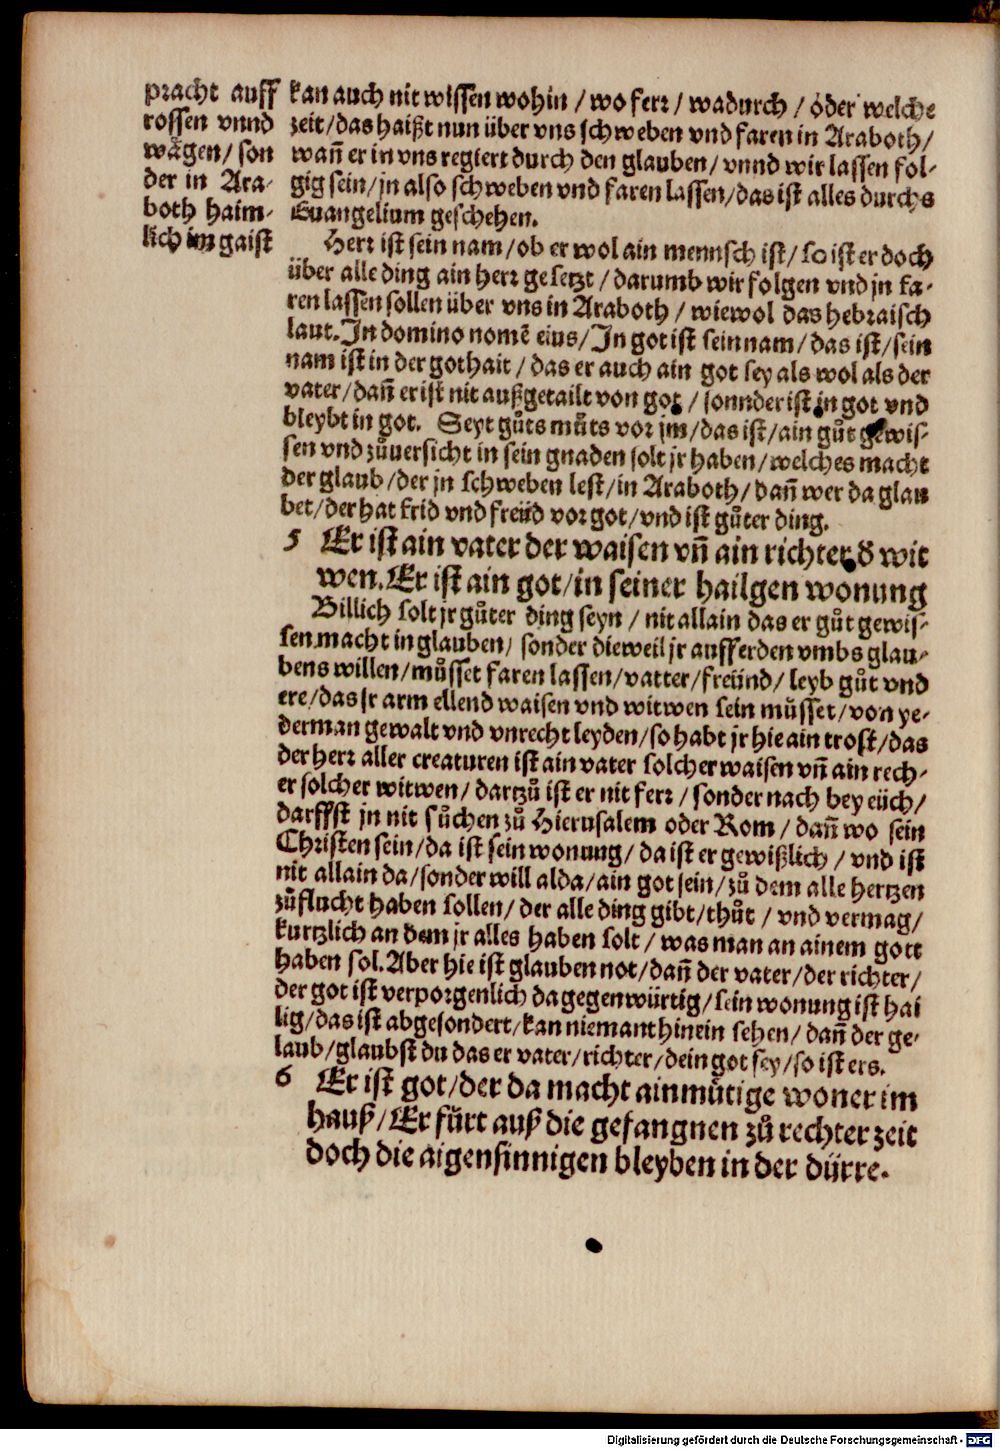 pracht auff
rossen vnnd
wågen/ son
der in Ara-
both haim-
lich im gaist
kan auch nit wissen wohin / wo ferr / wadurch / oder welche
zeit/das haißt nun über vns schweben vnd faren in Araboth/
wañ er in vns regiert durch den glauben/ vnnd wir lassen fol-
gig sein/jn also schweben vnd faren lassen/das ist alles durchs
Euangelium geschehen.
Herr ist sein nam/ob er wol ain mennsch ist/ so ist er doch
über alle ding ain herr gesetzt /darumb wir folgen vnd jn fa-
ren lassen sollen über vns in Araboth / wiewol das hebraisch
laut. In domino nomē eius/ In got ist sein nam/ das ist/sein
nam ist in der gothait / das er auch ain got sey als wol als der
vater/dañ er ist nit außgetailt von got / sonnder ist in got vnd
bleybt in got. Seyt gůts můts vor jm/das ist/ain gůt gewis-
sen vnd zůuersicht in sein gnaden solt jr haben/welches macht
der glaub/der jn schweben lest/in Araboth/ dañ wer da glau
bet/der hat frid vnd freüd vor got/vnd ist gůter ding.
5 Er ist ain vater der waisen vñ ain richter d' wit
wen. Er ist ain got/in seiner hailgen wonung
Billich solt jr gůter ding seyn / nit allain das er gůt gewis-
sen macht in glauben/ sonder dieweil jr aufferden vmbs glau-
bens willen/můsset faren lassen/vatter/freünd/ leyb gůt vnd
ere/das jr arm ellend waisen vnd witwen sein můsset/von ye-
derman gewalt vnd vnrecht leyden/so habt jr hie ain trost/das
der herr aller creaturen ist ain vater solcher waisen vñ ain rech-
er solcher witwen/ dartzů ist er nit ferr / sonder nach bey eüch/
darffst jn nit sůchen zů Hierusalem oder Rom / dañ wo sein
Christen sein/da ist sein wonung/ da ist er gewißlich / vnd ist
nit allain da/sonder will alda/ain got sein/zů dem alle hertzen
zůflucht haben sollen/ der alle ding gibt/thůt / vnd vermag/
kurtzlich an dem jr alles haben solt / was man an ainem gott
haben sol. Aber hie ist glauben not/dañ der vater/der richter/
der got ist verporgenlich da gegenwürtig/sein wonung ist hai
lig/das ist abgesondert/kan niemant hinein sehen/ dañ der ge-
laub/glaubst du das er vater/richter/dein got sey/so ist ers.
6 Er ist got/der da macht ainmůtige woner im
hauß/Er fůrt auß die gefangnen zů rechter zeit
doch die aigensinnigen bleyben in der dürre.
Digitalisierung gefördert durch die Deutsche Forschungsgemeinschaft - DFG